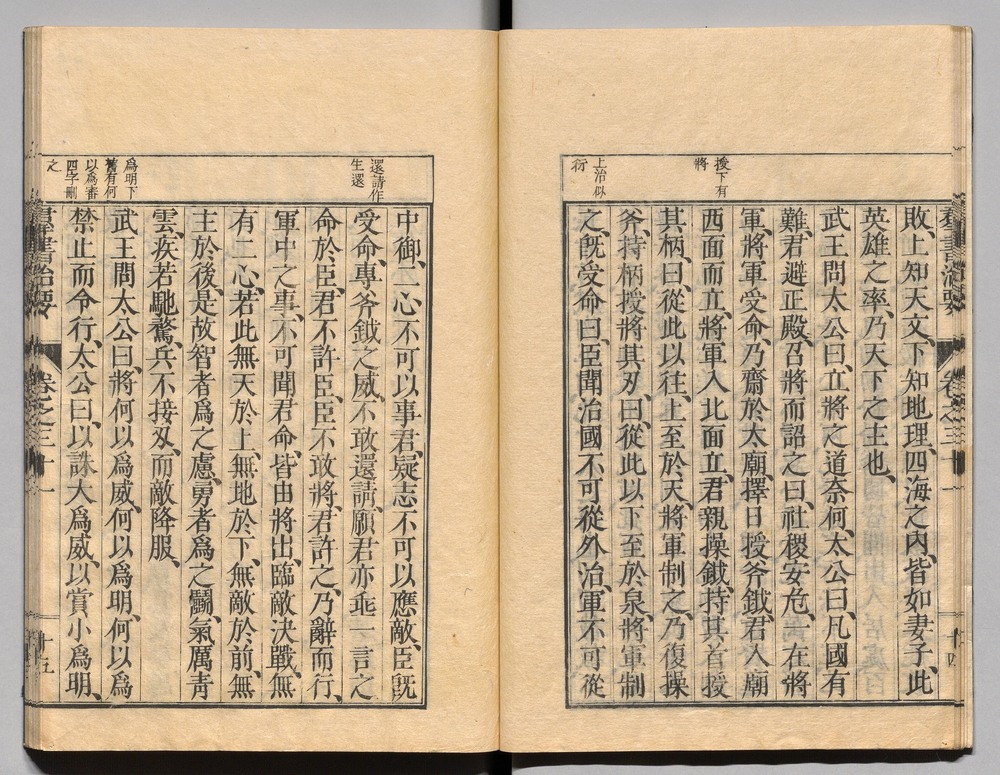 授下有
將
上治似
衍
敗、上知天文、下知地理、四海之內、皆如妻子、此
英雄之率、乃天下之主也、
武王問太公曰、立將之道奈何、太公曰、凡國有
難、君避正殿、召將而詔之曰、社稷安危、一在將
軍、將軍受命、乃齋於太廟、擇日授斧鉞、君入廟
西面而立、將軍入北面立、君親操鉞、持其首授
其柄、曰、從此以往、上至於天、將軍制之、乃復操
斧、持柄授將其刃、曰、從此以下、至於泉、將軍制
之、既受命曰、臣聞治國不可從外治、軍不可從
羣書治要
卷之三十一
十四
還請作
生還
爲明下
舊有何
以爲審
四字刪
之
中御、二心不可以事君、疑志不可以應敵、臣既
受命、專斧鉞之威、不敢還請、願君亦垂一言之
命於臣、君不許臣、臣不敢將、君許之、乃辭而行、
軍中之事、不可聞君命、皆由將出、臨敵決戰、無
有二心、若此無天於上、無地於下、無敵於前、無
主於後、是故智者爲之慮、勇者爲之鬪、氣厲青
雲、疾若馳騖、兵不接刃、而敵降服、
武王問太公曰、將何以爲威、何以爲明、何以爲
禁止而令行、太公曰、以誅大爲威、以賞小爲明、
羣書治要
卷之三十一
十五